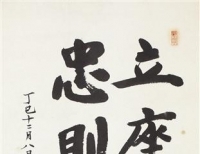 立座
忠則
丁巳十二月八日